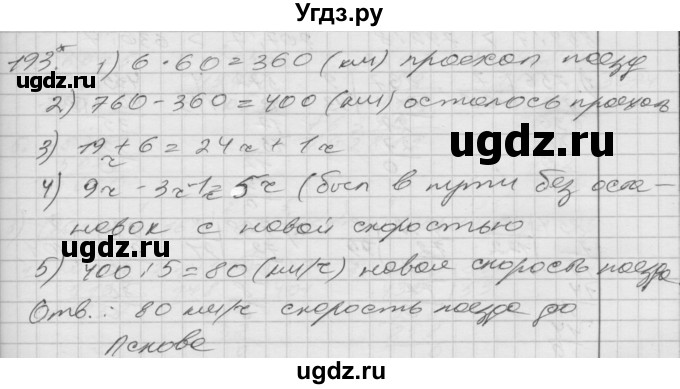 Угдз.ру
193.* 1) 6 · 60 = 360 (км) проехал поезд
угдз.ру
2) 760 - 360 = 400 (км) осталось проехать
угдз.ру
3) 19ч + 6 = 24ч + 1ч
4) 9ч - 3ч - 1ч = 5ч (был в пути без оста-
новок с новой скоростью
угдз.ру
5) 400 : 5 = 80 (км/ч) новая скорость поезда
Отв.: 80 км/ч скорость поезда до
Пскова
угдз.ру